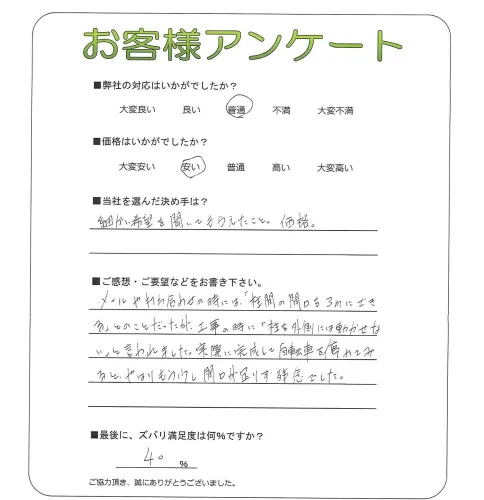 お客様アンケート
■弊社の対応はいかがでしたか？
大変良い 良い 普通 不満 大変不満
■価格はいかがでしたか？
大変安い 安い 普通 高い 大変高い
■当社を選んだ決め手は？
細かい希望を聞いてもらえたこと。価格。
■ご感想・ご要望などをお書き下さい。
メールやれり合わせの時には、「柱間の間口を3mにでき
る」とのことだったが、工事の時に「柱を外側には動かせな
い」と言われました。実際に完成して自転車を停めてみ
ると、やはりもう少し間口が足りず残念でした。
■最後に、ズバリ満足度は何%ですか？
40 %
ご協力頂き、誠にありがとうございました。